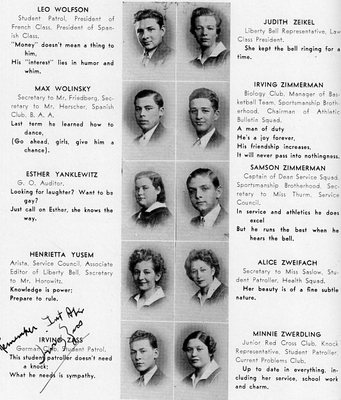 LEO WOLFSON
Student Patrol, President of
French Class, President of Span-
ish Class.
"Money" doesn't mean a thing to
him.
His "interest" lies in humor and
whim.
MAX WOLINSKY
Secretary to Mr. Friedberg, Sec-
retary to Mr. Herscher, Spanish
Club, B. A. A.
Last term he learned how to
dance,
(Go ahead, girls, give him a
chance).
ESTHER YANKLEWITZ
G. O. Auditor.
Looking for laughter? Want to be
gay?
Just call on Esther, she knows the
way.
HENRIETTA YUSEM
Arista, Service Council, Associate
Editor of Liberty Bell, Secretary
to Mr. Horowitz.
Knowledge is power;
Prepare to rule.
Remember
IRVING ZASS
German Club, Student Patrol.
This student patroller doesn't need
a knock;
What he needs is sympathy.
JUDITH ZEIKEL
Liberty Bell Representative, Law
Class President.
She kept the bell ringing for a
time.
IRVING ZIMMERMAN
Biology Club, Manager of Bas-
ketball Team, Sportsmanship Broth-
erhood, Chairman of Athletic
Bulletin Squad.
A man of duty
He's a joy forever,
His friendship increases,
It will never pass into nothingness.
SAMSON ZIMMERMAN
Captain of Dean Service Squad,
Sportsmanship Brotherhood, Sec-
retary to Miss Thurm, Service
Council.
In service and athletics he does
excel
But he runs the best when he
hears the bell.
ALICE ZWEIFACH
Secretary to Miss Saslow, Stu-
dent Patroller, Health Squad.
Her beauty is of a fine subtle
nature.
MINNIE ZWERDLING
Junior Red Cross Club, Knock
Representative, Student Patroller
Current Problems Club.
Up to date in everything, in-
cluding her service, school work
and charm.